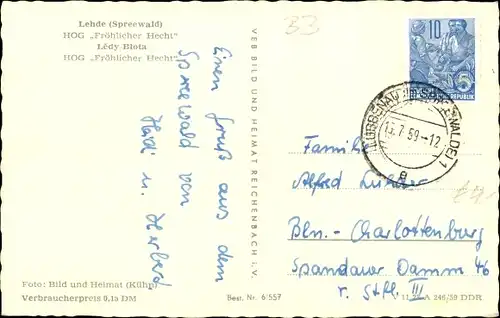 Lehde (Spreewald)
HOG „Fröhlicher Hecht"
Lědy-Błota
HOG „Fröhlicher Hecht"
33
Einen Gruß aus dem
Spreewald von
Heidi u. Herbert
VEB BILD UND HEIMAT REICHENBACH i. V.
10
5
LÜBBENAU (SPREEWALDE) 1
13.7.59-12
a
Familie
Alfred
Bln.-Charlottenburg
Spandauer Damm 46
v. Stfl. III
Foto: Bild und Heimat (Kühn)
Verbraucherpreis 0,15 DM
Best. Nr. 6/557
V 11 28 A 246/59 DDR